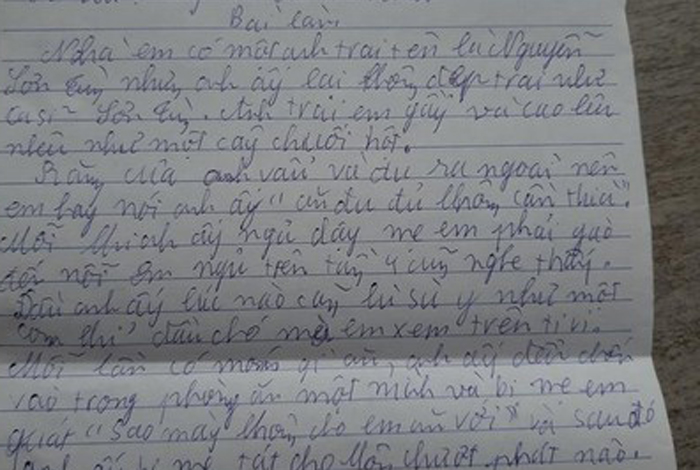 Bài làm
Nhà em có một anh trai tên là Nguyễn
Sơn Tùng nhưng anh ấy lại không đẹp trai như
ca sĩ Sơn Tùng. Anh trai em gầy và cao lêu
nhêu như một cây chuối hột.
Răng của anh vẩu và đu ra ngoài nên
em hay nói anh ấy "ăn đu đủ không cần thìa".
Mỗi khi anh ấy ngủ dậy mẹ em phải gào
đến nỗi em ngủ trên tầng 4 cũng nghe thấy.
Đầu anh ấy lúc nào cũng xù y như một
con thú đầu chó mà em xem trên ti vi.
Mỗi lần có món gì ăn, anh ấy đều
vào trong phòng ăn một mình và bị mẹ em
quát "sao mày không cho em ăn với" và sau đó
anh ấy bị mẹ tát cho một phát